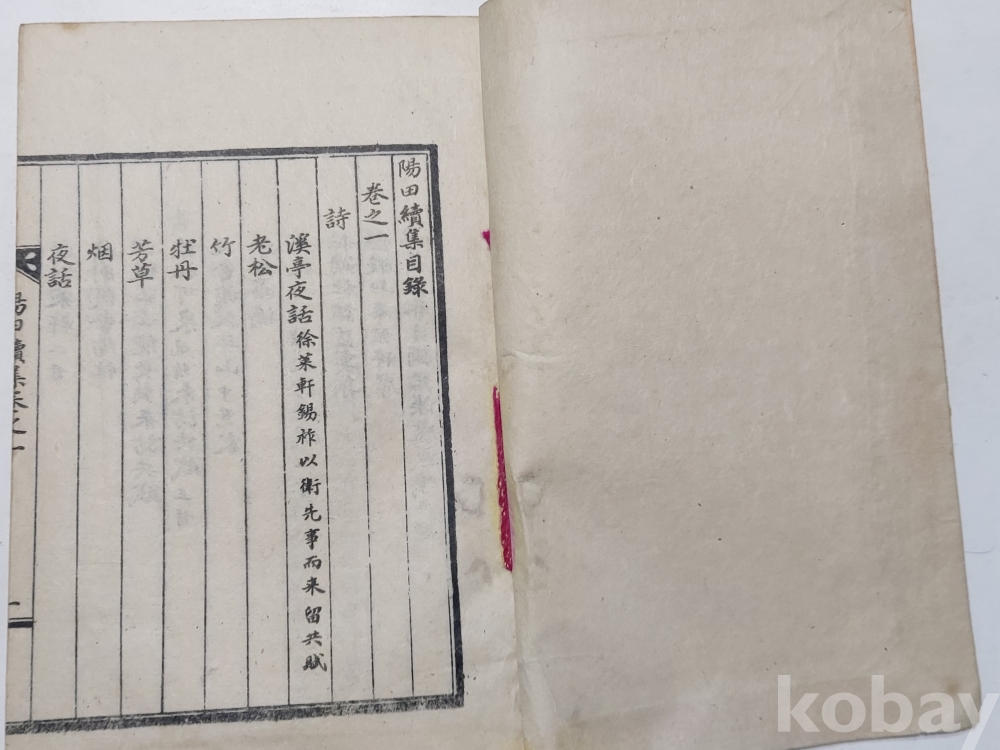 陽田續集目錄
卷之一
詩
溪亭夜話徐萊軒錫祚以衛先事而來留共賦
老松
竹
牡丹
芳草
烟
夜話
陽田續集卷之一
一
kobay